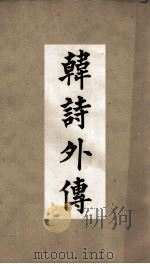 韓詩外傳
mtoou.info